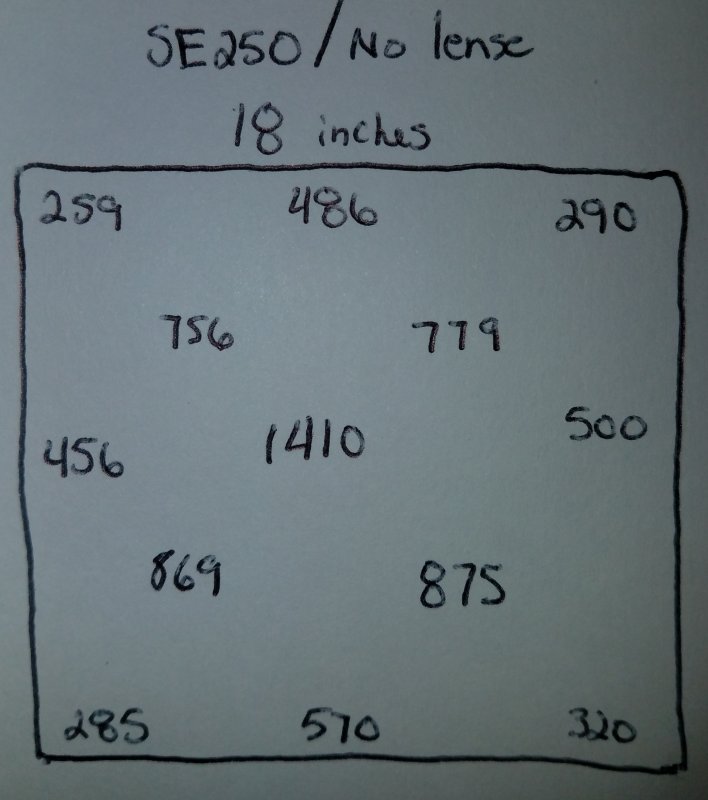 SE250/No lense
18 inches
259 486 290
756 779
456 1410 500
869 875
285 570 320